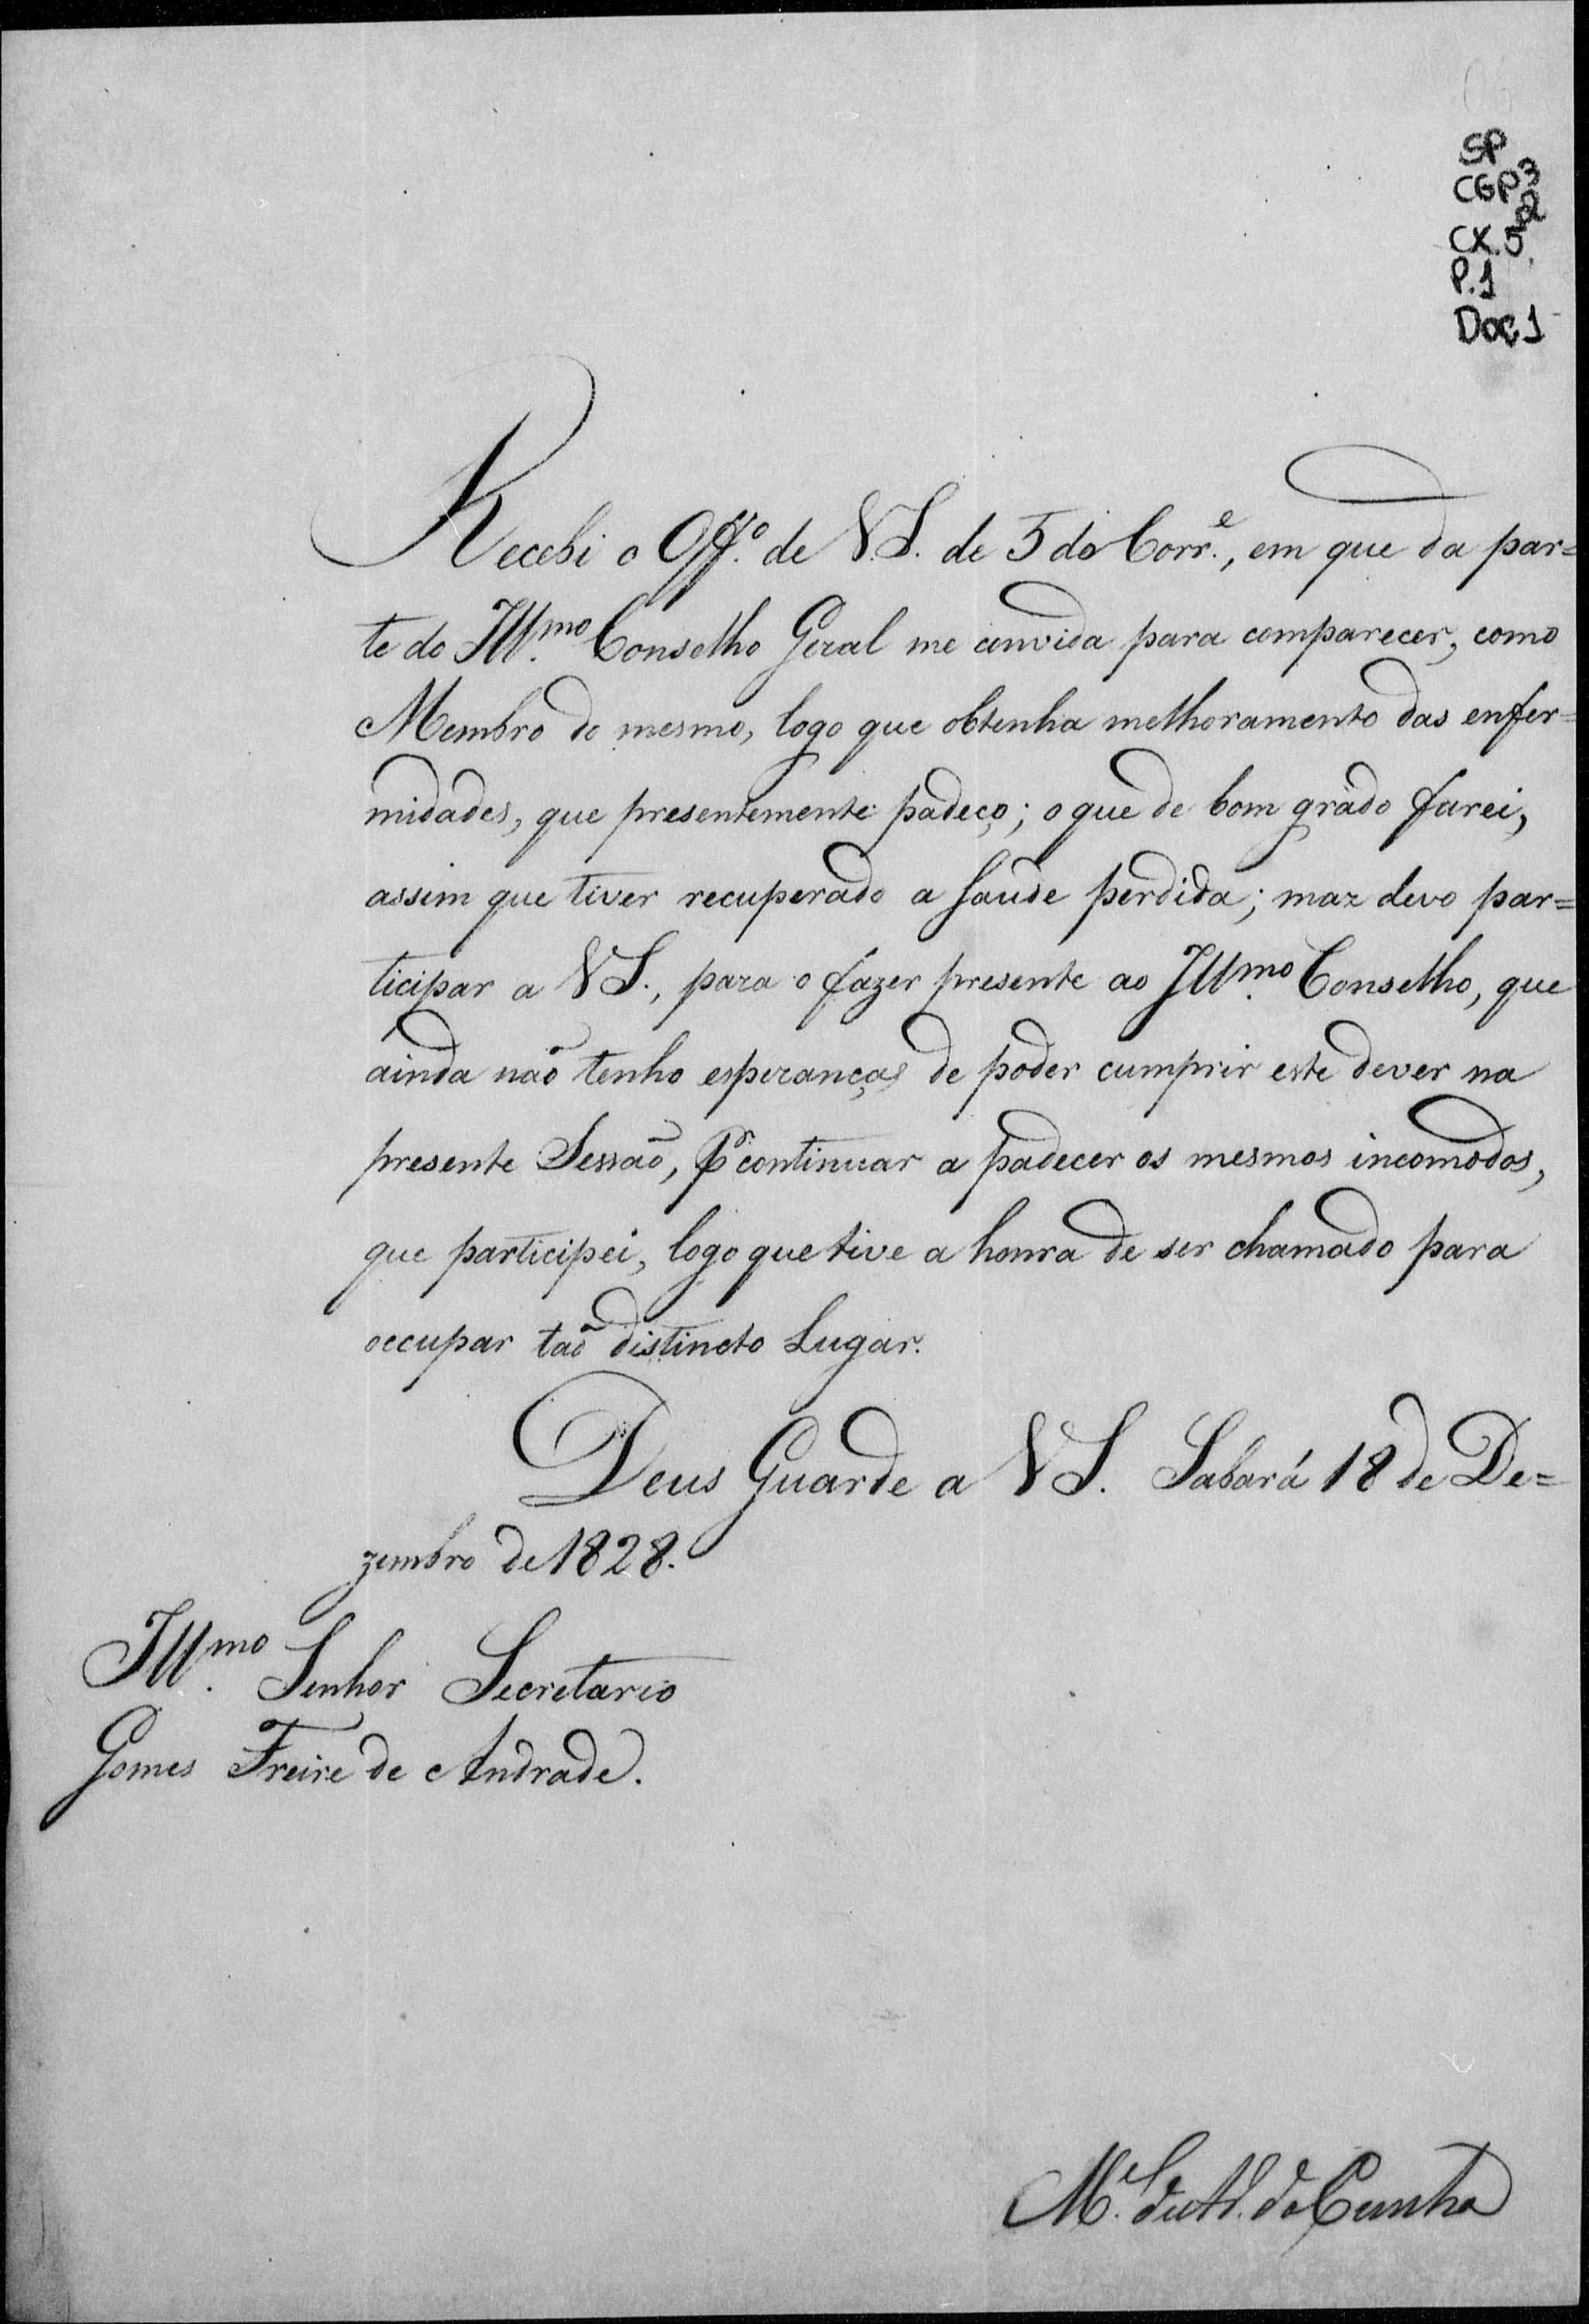 SP
CGP3
CX.52
P.1
Doc.1
Recebi o Off.º de V.S. de 5 do Corr.e, em que da par=
te do Ill.mo Conselho Geral me convida para comparecer, como
Membro do mesmo, logo que obtenha melhoramento das enfer=
midades, que presentemente padeço; o que de bom grado farei,
assim que tiver recuperado a saude perdida; maz devo par=
ticipar a VS., para o fazer presente ao Ill.mo Conselho, que
ainda naõ tenho esperanças de poder cumprir este dever na
presente Sessaõ, Pr continuar a padecer os mesmos incomodos,
que participei, logo que tive a honra de ser chamado para
occupar taõ distincto Lugar.
Deus Guarde a VS. Sabará 18 de De=
zembro de 1828.
Ill.mo Senhor Secretario
Gomes Freire de Andrade.
M.el da Cunha